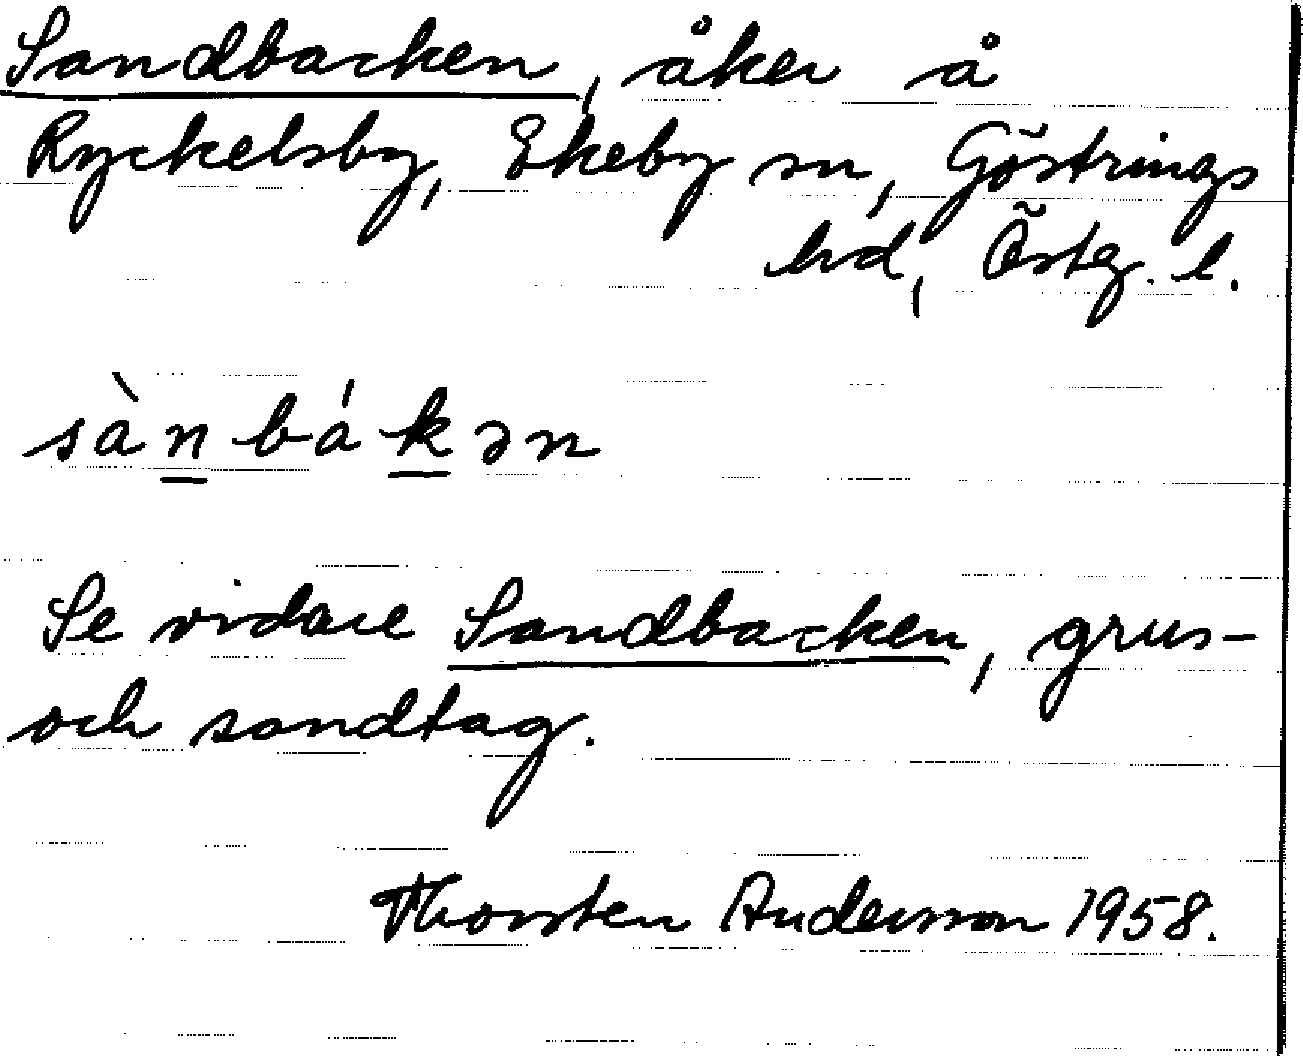 Sandbacken, åker å
Ryckelsby, Ekeby sn, Göstrings
hd, Östg. l.
sànbákən
Se vidare Sandbacken, grus-
och sandtag.
Thorsten Andersson 1958.